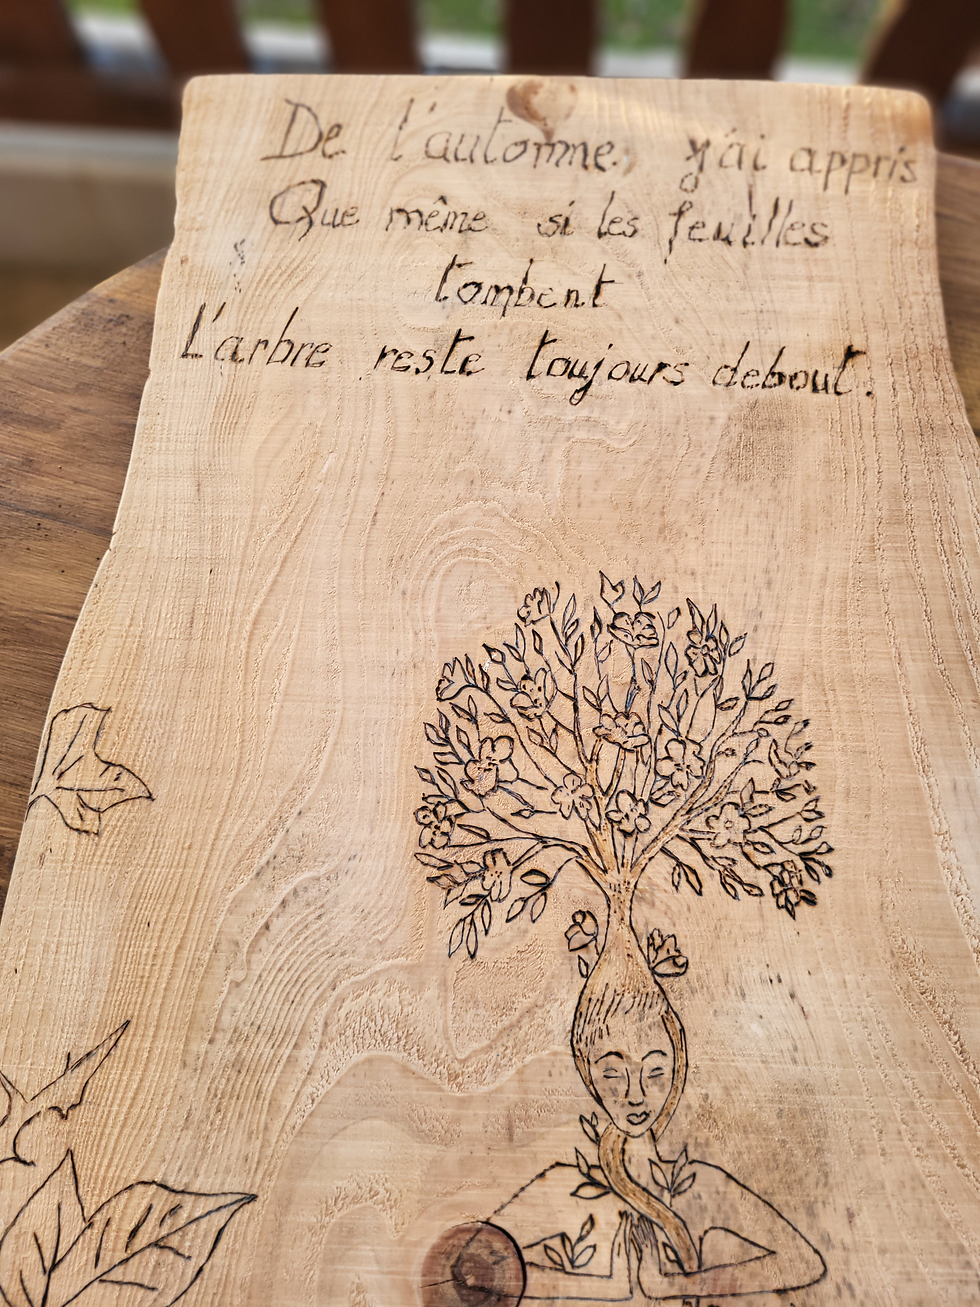 De l'automne, j'ai appris
Que même si les feuilles
tombent
L'arbre reste toujours debout.